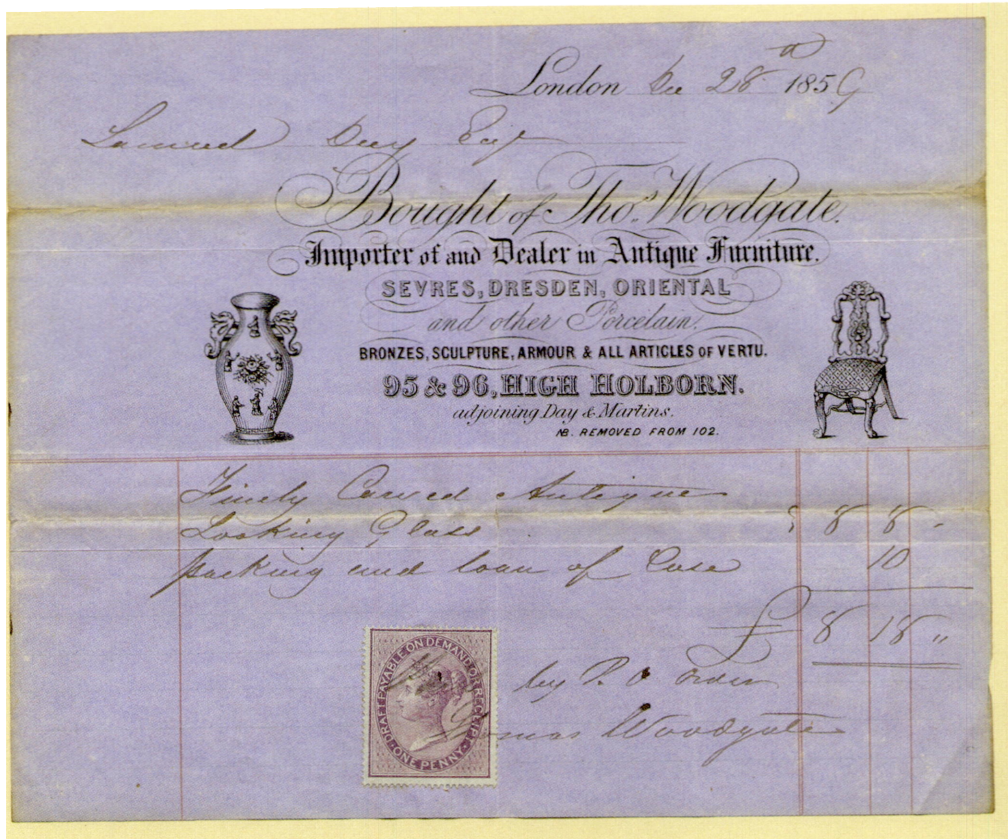 London Dec 28th 1859
Samuel Day Esqr
Bought of Thos. Woodgate.
Importer of and Dealer in Antique Furniture.
SEVRES, DRESDEN, ORIENTAL
and other Porcelain.
BRONZES, SCULPTURE, ARMOUR & ALL ARTICLES OF VERTU.
95 & 96, HIGH HOLBORN.
adjoining Day & Martins.
NB. REMOVED FROM 102.
Finely Carved Antique
Looking Glass 8 8 -
packing and loan of Case 10
£ 8 18 "
DRAFT PAYABLE ON DEMAND OR RECEIPT
ONE PENNY
by P. O order
Thomas Woodgate